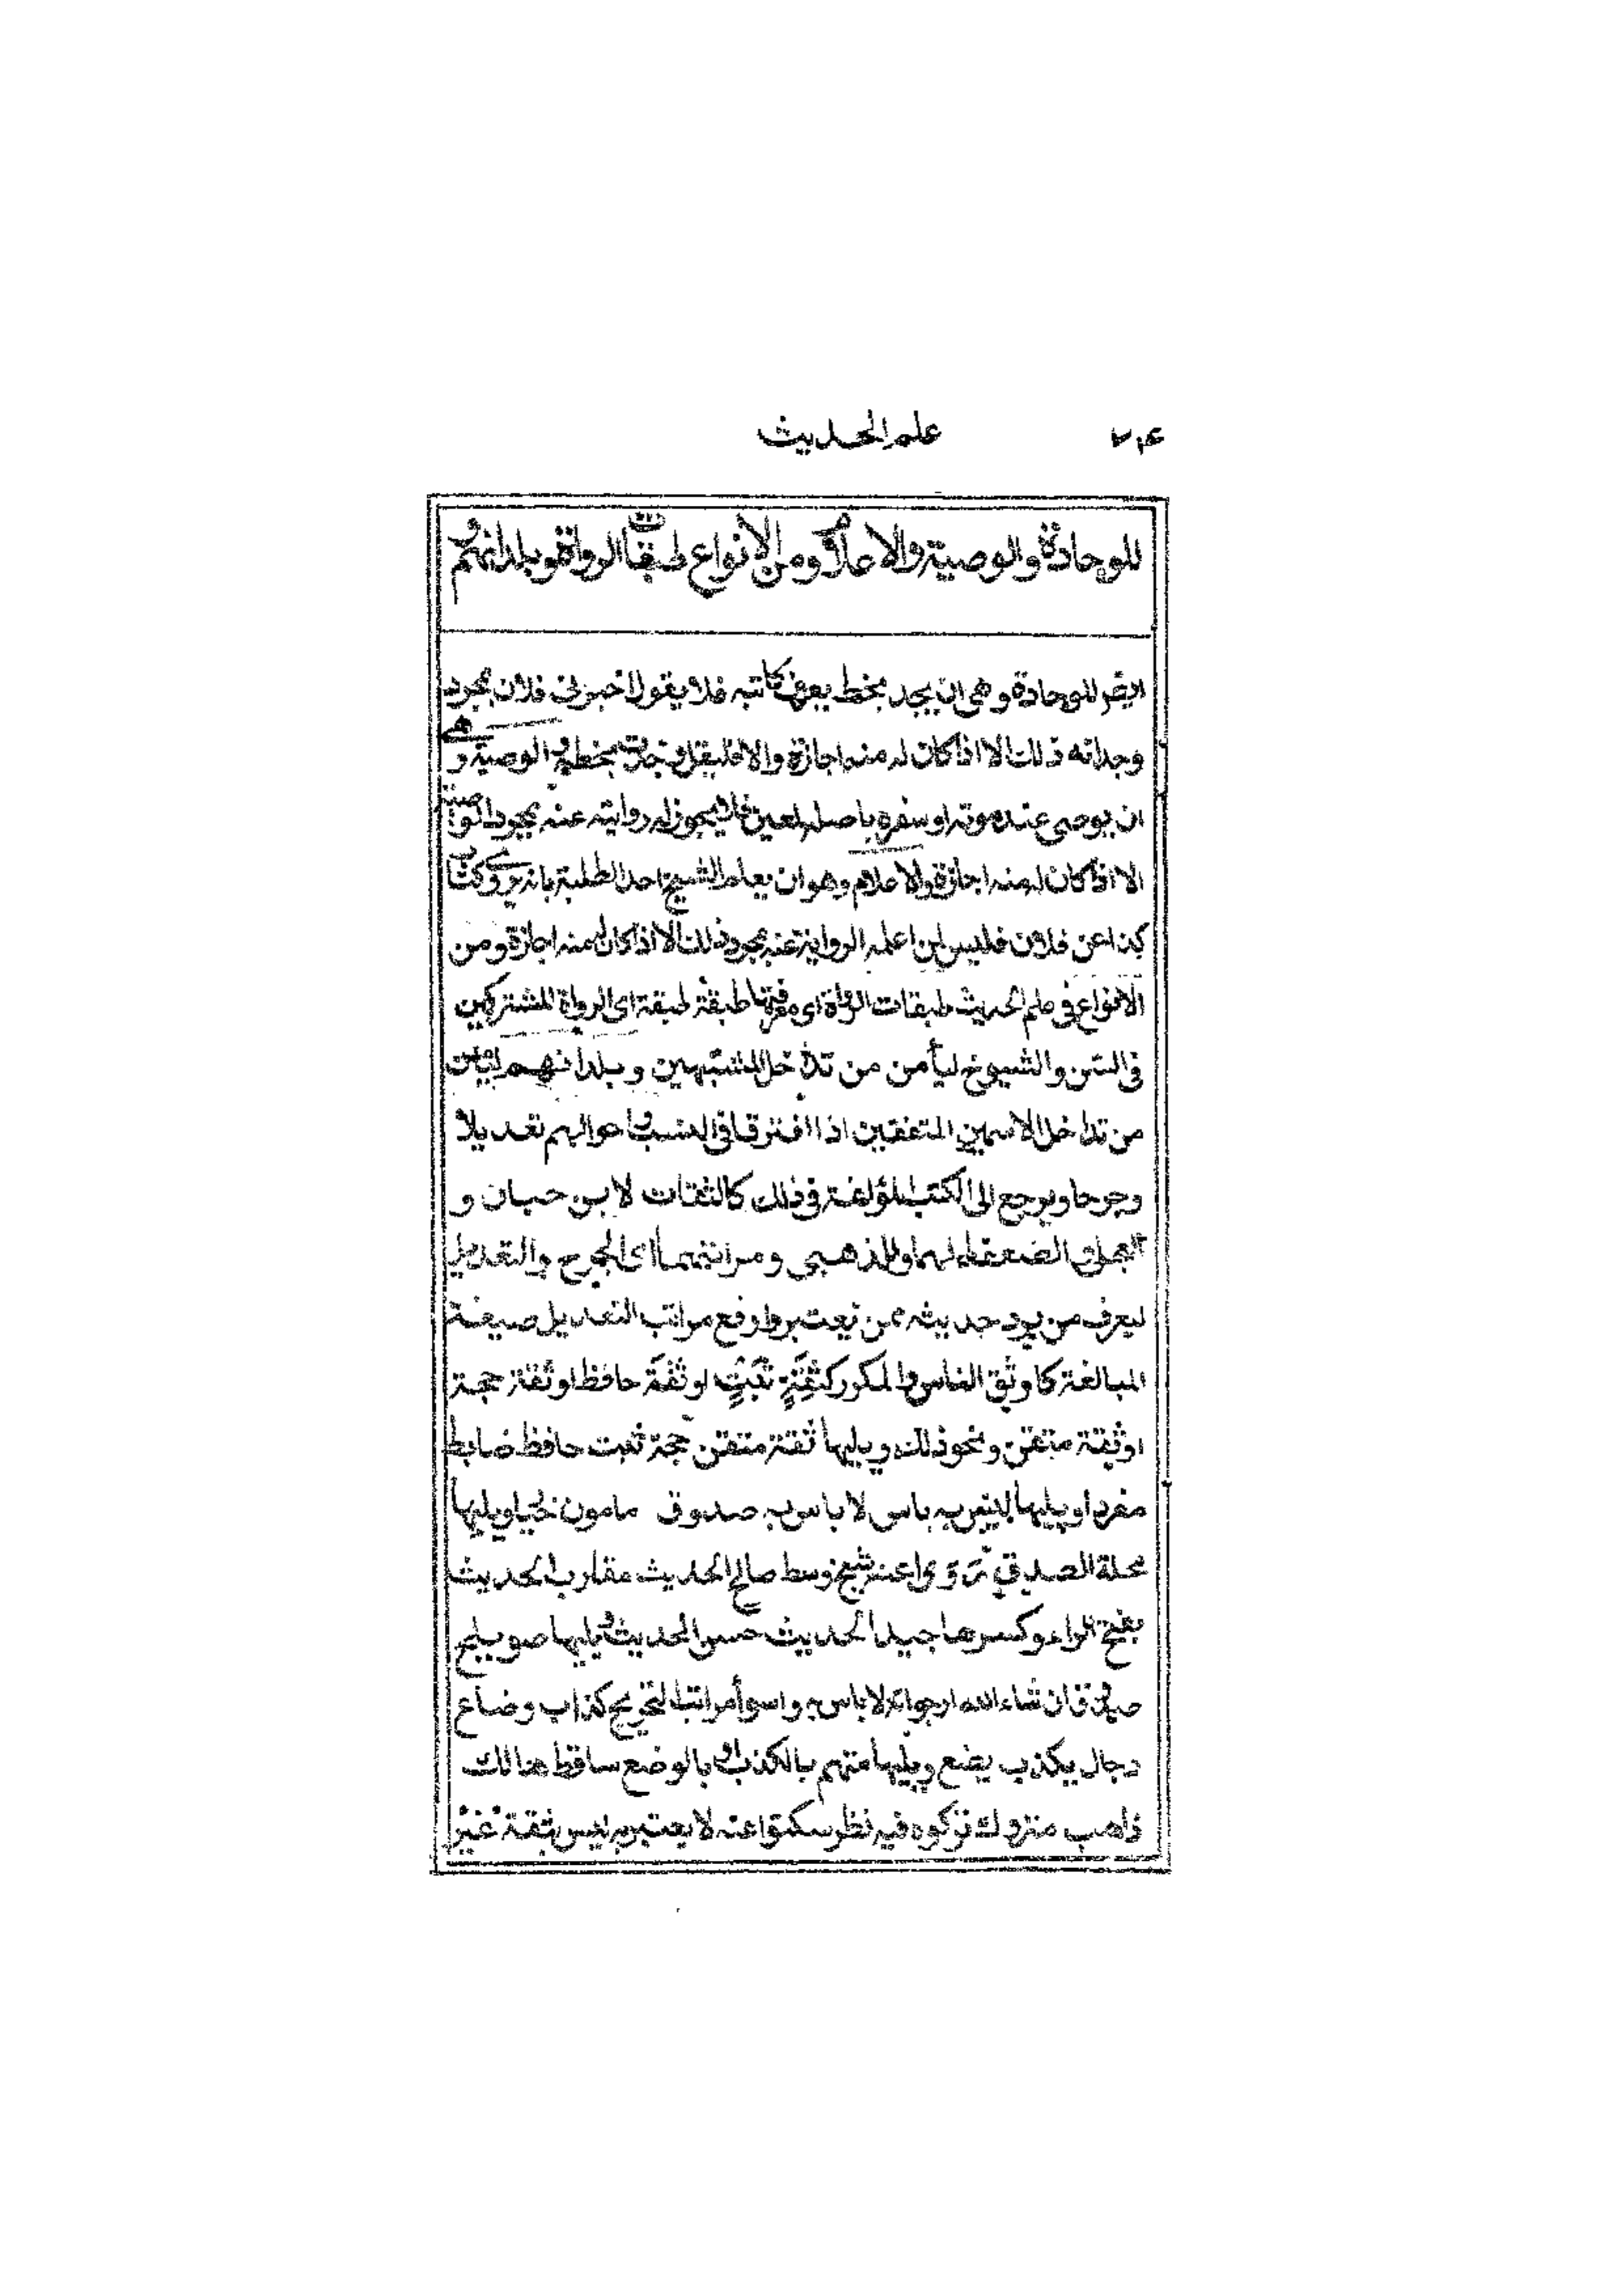 علم الحديث ٢٠٤
للوجادة والوصية والاعلام ومن الأنواع طبقات الرواة وبلدانهم و
ايضر للوجادة وهي ان يجد بخط يعرف كاتبه فلا يقول اخبرني فلان بمجرد
وجدانه ذلك الا اذا كان له منه اجازة والا فليقل وجدت بخطه و الوصية و هي
ان يوصي عند موته او سفره باصله لمعين فلا يجوز له روايته عنه بمجرد الوصية
الا اذا كان له منه اجازة والاعلام وهو ان يعلم الشيخ احد الطلبة بانه يروي كتاب
كذا عن فلان فليس لمن اعلمه الرواية عنه بمجرد ذلك الا اذا كان له منه اجازة ومن
الانواع في علم الحديث طبقات الرواة اي معرفتها طبقة طبقة اي الرواة المشتركين
في السن والشيوخ ليأمن من تداخل المشتبهين وبلدانهم ليأمن
من تداخل الاسمين المتفقين اذا افترقا في النسب واحوالهم تعديلا
وجرحا ويرجع الى الكتب المؤلفة في ذلك كالثقات لابن حبان و
العجلي الضعفاء لهما وللذهبي ومراتبهما اي الجرح والتعديل
ليعرف من يرد حديثه ممن يعتبر وارفع مراتب التعديل صيغة
المبالغة كاوثق الناس والمكرر كثقة ثبت او ثقة حافظ او ثقة حجة
او ثقة متقن ونحو ذلك ويليها ثقة متقن حجة ثبت حافظ ضابط
مفردا ويليها ليس به باس لا باس به صدوق مامون خيار ويليها
محلة الصدق رَوَوا عنه شيخ وسط صالح الحديث مقارب الحديث
بفتح الراء وكسرها جيد الحديث حسن الحديث ويليها صويلح
صدوق ان شاء الله ارجوانه لا باس به واسوأ مراتب التجريح كذاب وضاع
دجال يكذب يضع ويليها متهم بالكذب او بالوضع ساقط هالك
ذاهب متروك تركوه فيه نظر سكتوا عنه لا يعتبر به ليس بثقة غير